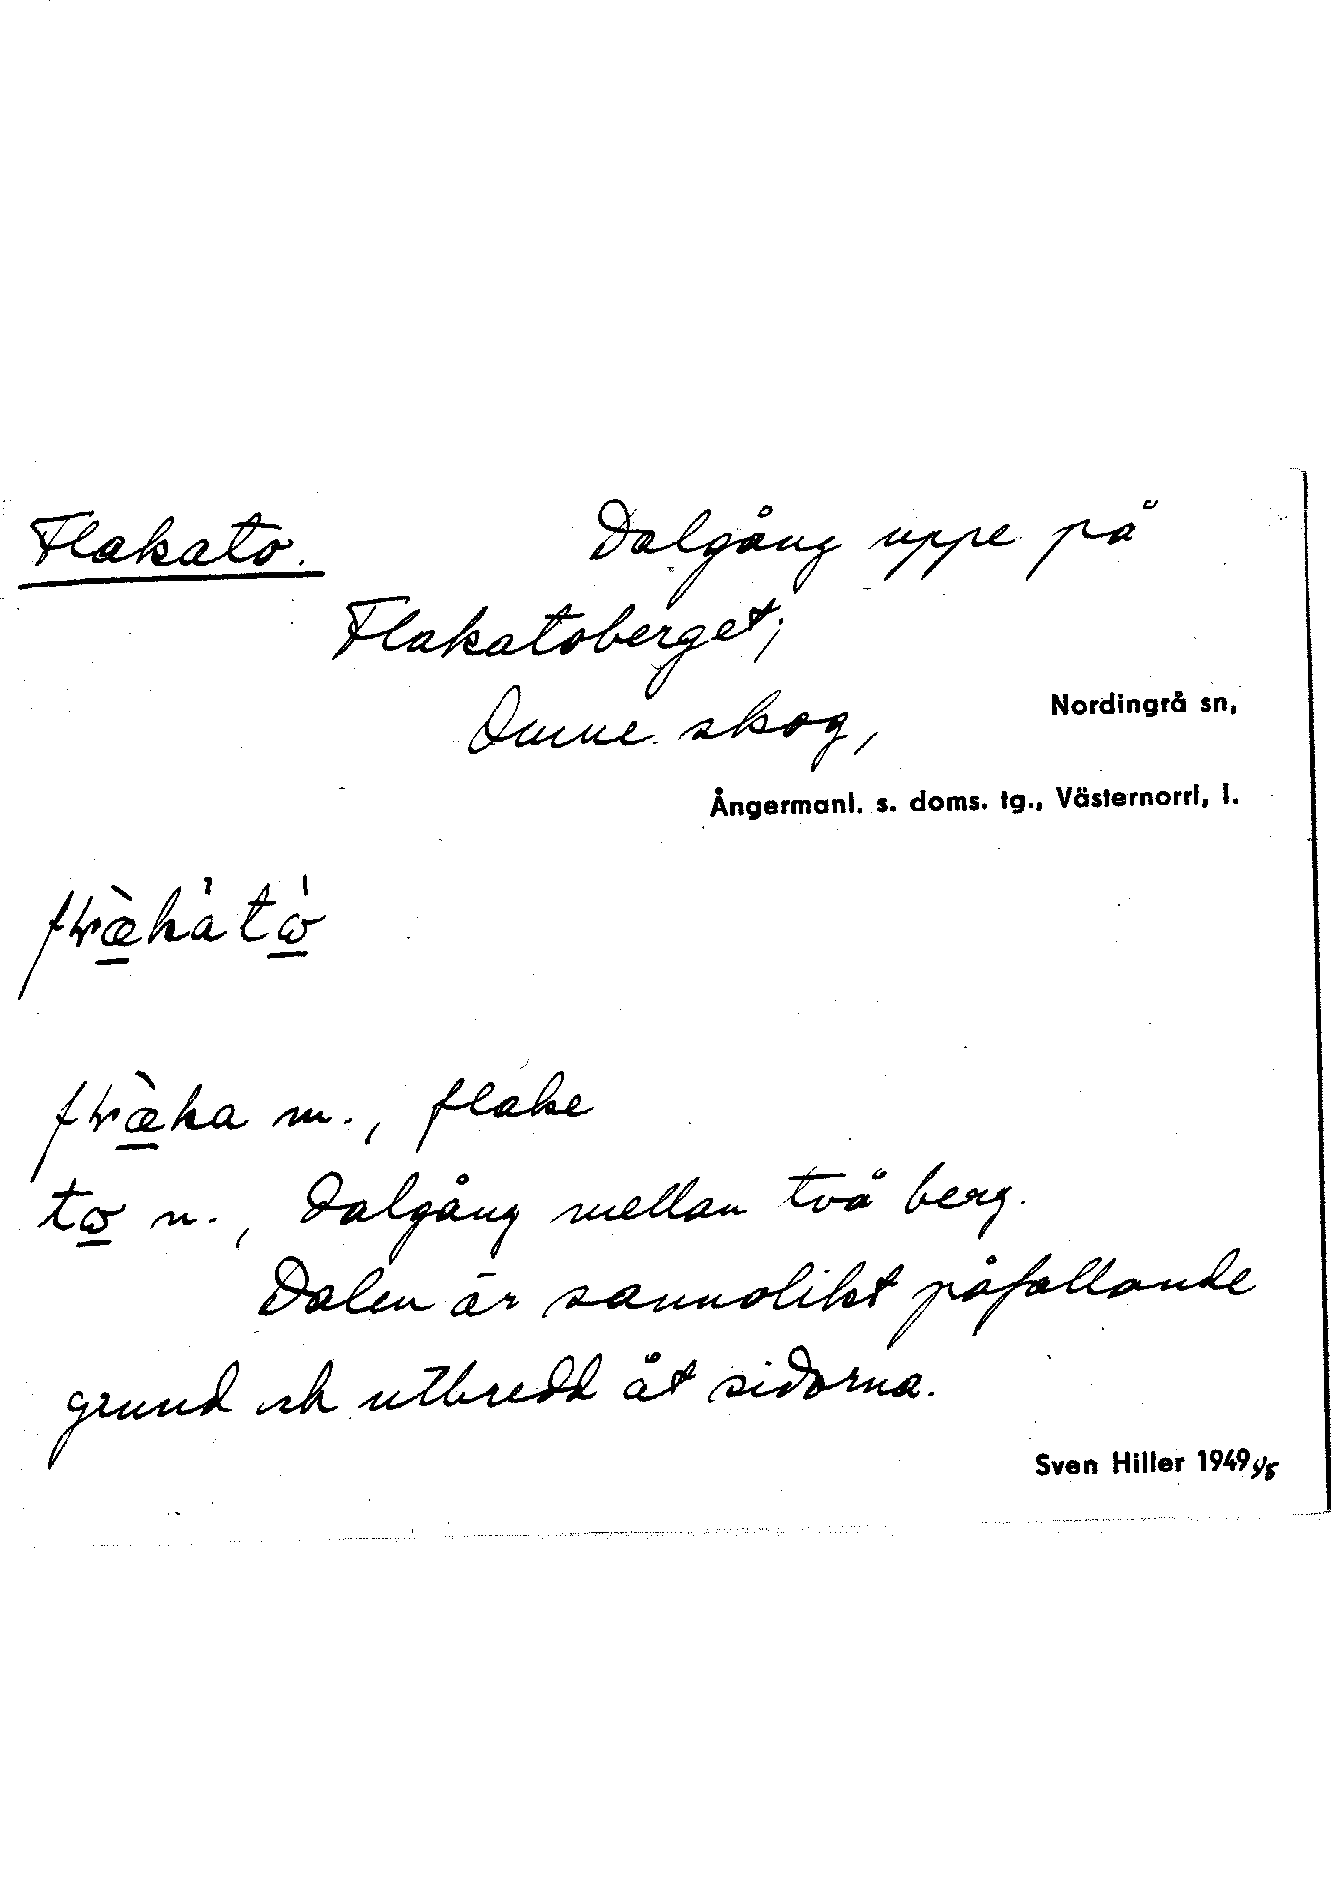 Flakato. Dalgång uppe på
Flakatoberget;
Omne skog, Nordingrå sn,
Ångermanl. s. doms. tg., Västernorrl, l.
m., flake
n., dalgång mellan två berg.
Dalen är sannolikt påfallande
grund och utbredd åt sidorna.
Sven Hiller 1949